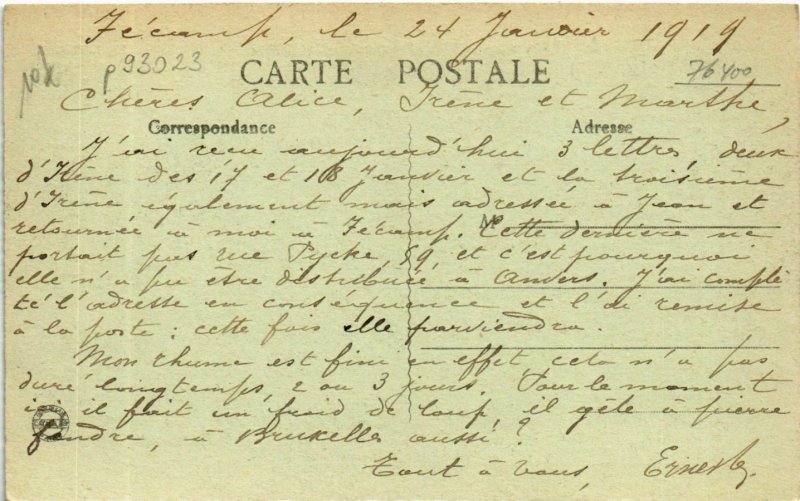 Fécamp, le 24 Janvier 1919
p93023
76400
CARTE POSTALE
Chères Alice, Irène et Marthe,
Correspondance
Adresse
J'ai reçu aujourd'hui 3 lettres, deux
d'Irène des 17 et 18 Janvier et la troisième
d'Irène également mais adressée à Jean et
retournée à moi à Fécamp. Cette dernière ne
M
portait pas rue Pycke, 59, et c'est pourquoi
elle n'a pu être distribuée à Anvers. J'ai complè
té l'adresse en conséquence et l'ai remise
à la poste : cette fois elle parviendra.
Mon rhume est fini en effet cela n'a pas
duré longtemps, 2 ou 3 jours. Pour le moment
ici il fait un froid de loup, il gèle à pierre
fendre, à Bruxelles aussi ?
Tout à vous, Ernest